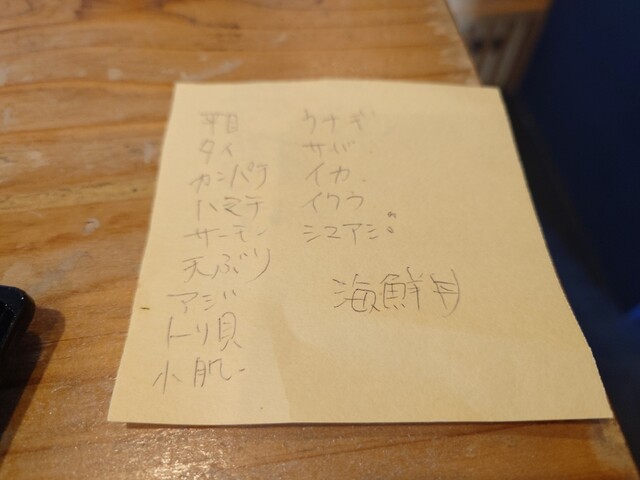 平目
タイ
カンパチ
ハマチ
サーモン
天ぶり
アジ
トリ貝
小肌
ウナギ
サバ
イカ
イクラ
シマアジ
海鮮丼